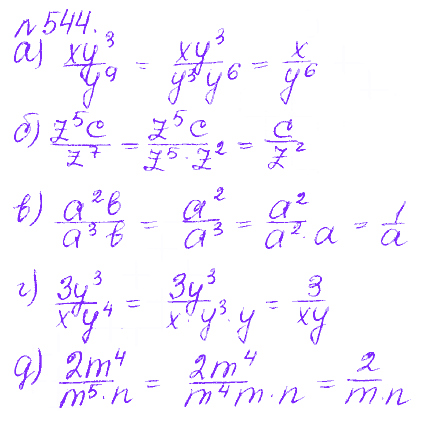 №544.
а) xy³/y⁹ = xy³/y³y⁶ = x/y⁶
б) z⁵c/z⁷ = z⁵c/z⁵·z² = c/z²
в) a²b/a³b = a²/a³ = a²/a²·a = 1/a
г) 3y³/xy⁴ = 3y³/x·y³·y = 3/xy
д) 2m⁴/m⁵·n = 2m⁴/m⁴m·n = 2/m·n